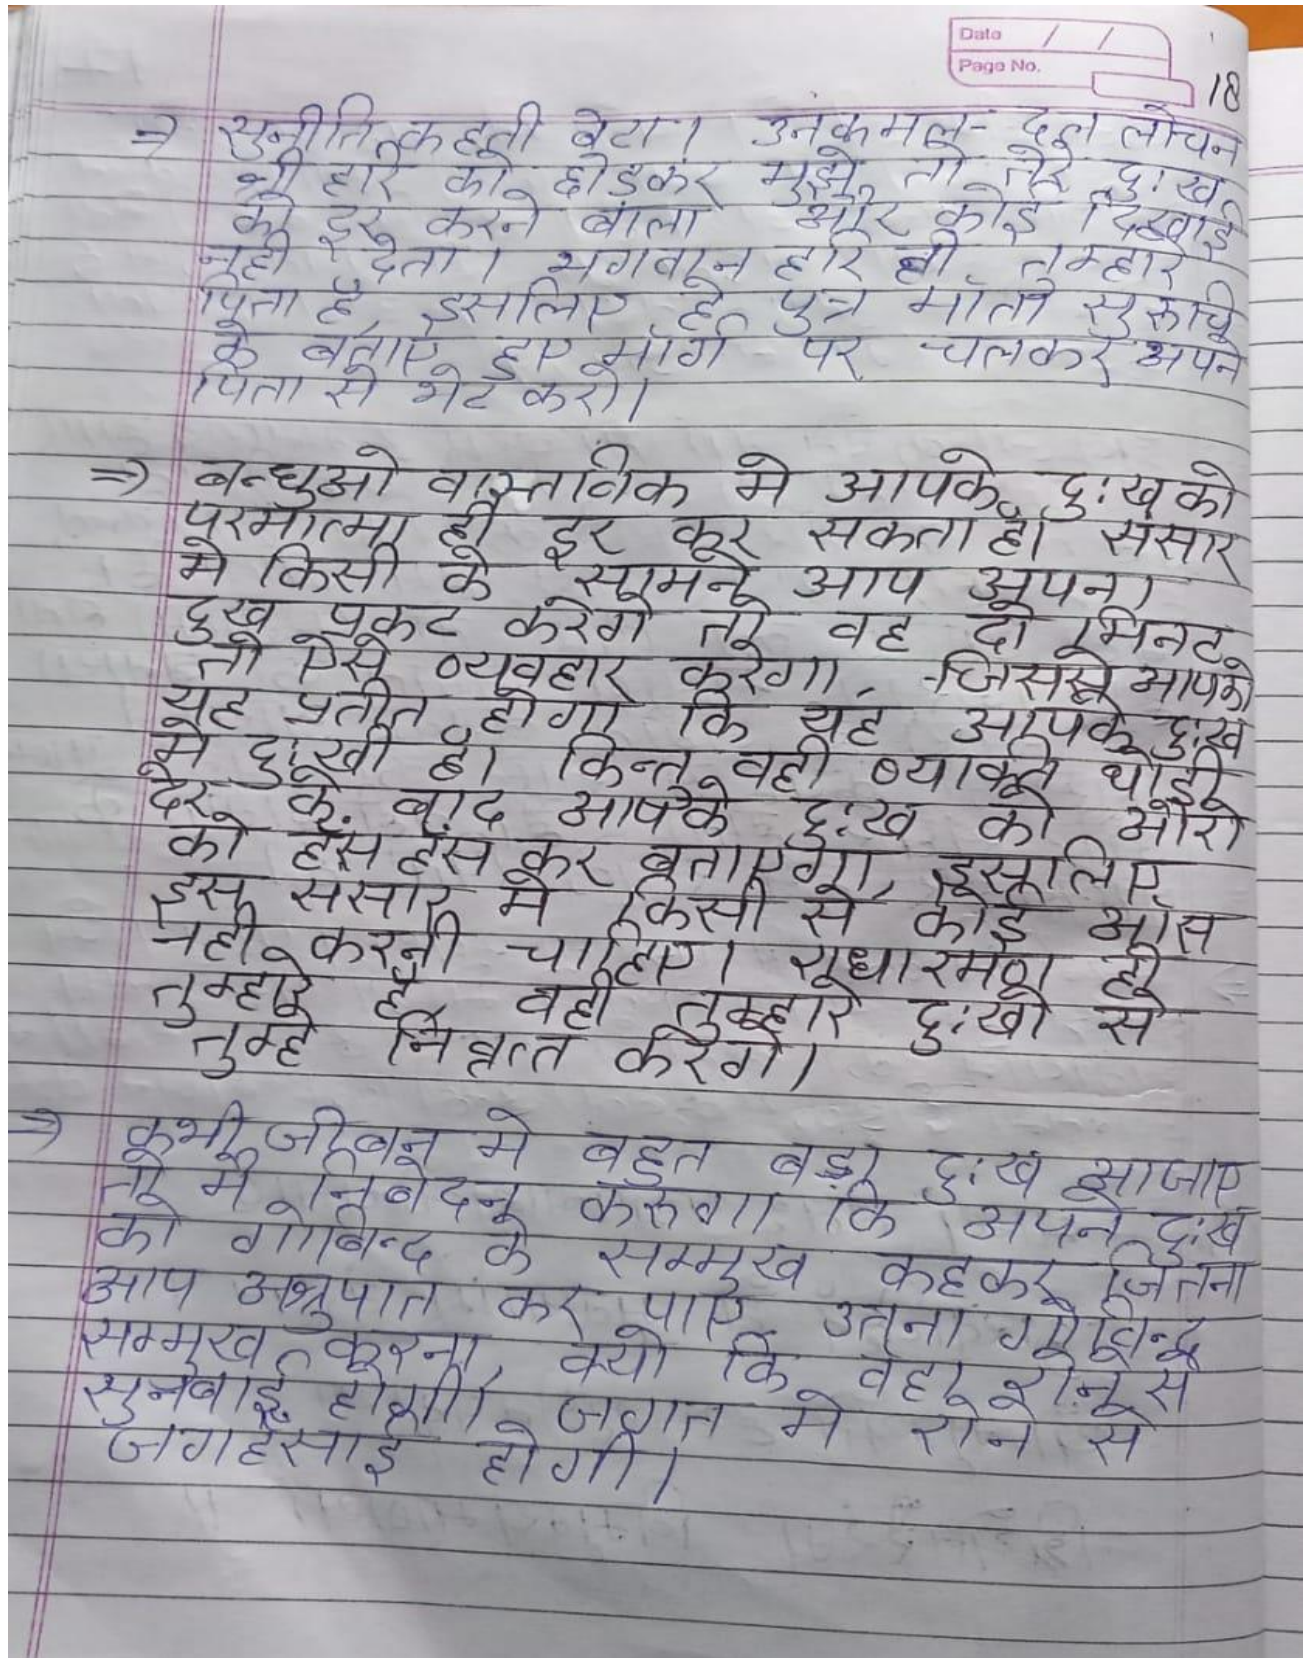 Date / /
Page No.
18
⇒ सुनीति कहती बेटा। उनकमल- दल लोचन
श्री हरि को छोडकर मुझे तो तेरे दुःख
को दूर करने बाला और कोई दिखाई
नही देता। भगवान हरि ही तुम्हारे
पिता है, इसलिए हे पुत्र माँता सुरूचि
के बताए हुए मार्ग पर चलकर अपने
पिता से भेट करो।
⇒ बन्धुओ वास्तविक मे आपके दुःख को
परमात्मा ही दूर कर सकता है। संसार
मे किसी के सामने आप अपना
दुख प्रकट करेगे तो वह दो मिनट
तो ऐसे व्यवहार करेगा, जिससे आपको
यह प्रतीत होगा कि यह आपके दुःख
मे दुःखी है। किन्तु वही व्यक्ति थोडी
देर के बाद आपके दुःख को औरो
को हँस हँस कर बताएगा, इसलिए
इस संसार मे किसी से कोई आँस
नही करनी चाहिए। राधारमण ही
तुम्हारे है, वही तुम्हारे दुःखो से
तुम्हे करेगे।
⇒ कभी जीबन मे बहुत बड़ा दुःख आजाए
तो मे निबेदन करूगा कि अपने दुःख
को गोबिन्द के सम्मुख कहकर जितना
आप अश्रुपात कर पाए उतना गोबिन्द
सम्मुख करना, क्यो कि वहा रोने से
सुनबाई होगी। जगत मे रोने से
जगहँसाई होगी।